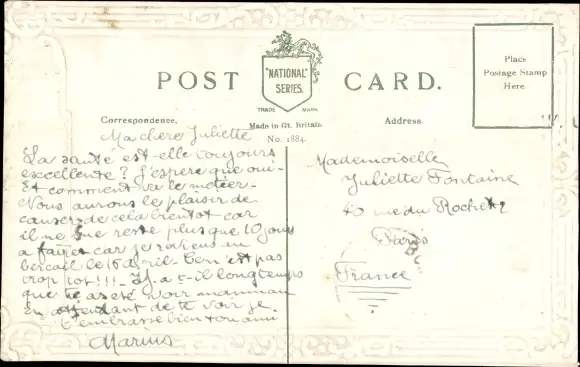 POST CARD.
"NATIONAL"
SERIES.
TRADE MARK.
Correspondence.
Made in Gt. Britain.
No. 1884.
Address.
Place
Postage Stamp
Here
Ma chère Juliette
La santé est-elle toujours
excellente? J'espère que oui-
Et comment va le métier-
Nous aurons le plaisir de
causer de cela bientot car
il ne me reste plus que 10 jours
a faire car je reviens au
bercail le 15 avril. Cen est pas
trop tot!!!- Y a t-il longtemps
que tu as été voir maman
En attendant de te voir je
t'embrasse bien ton ami
Marius
Mademoiselle
Juliette Fontaine
rue du Rocher
Paris
France